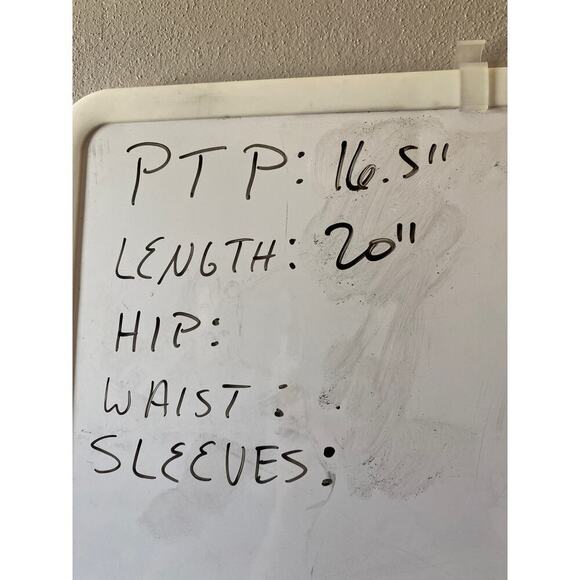 PTP: 16.5"
LENGTH: 20"
HIP:
WAIST:
SLEEVES: